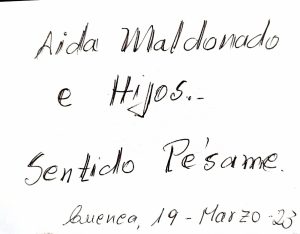 Aida Maldonado
e Hijos.-
Sentido Pésame.
Cuenca, 19 - Marzo - 23